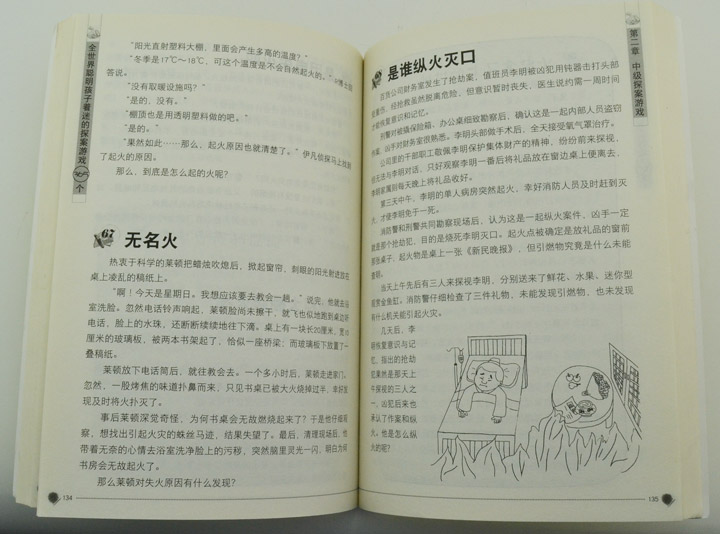 全世界聪明孩子着迷的探案游戏
个
“阳光直射塑料大棚，里面会产生多高的温度？”
“冬季是17℃～18℃，可这个温度是不会自然起火的。”
答说。
“没有取暖设施吗？”
“是的，没有。”
“棚顶也是用透明塑料做的吧。”
“是的。”
“果然如此……那么，起火原因也就清楚了。”伊凡侦探马上找到
了起火的原因。
那么，到底是怎么起的火呢？
67 无名火
热衷于科学的莱顿把蜡烛吹熄后，掀起窗帘，刺眼的阳光射进放在
桌上凌乱的稿纸上。
“啊！今天是星期日。我想应该要去教会一趟。”说完，他就去浴
室洗脸。忽然电话铃声响起，莱顿脸尚未擦干，就飞也似地跑到桌边听
电话，脸上的水珠，还断断续续地往下滴。桌上有一块长20厘米，宽10
厘米的玻璃板，被两本书架起了，恰似一座桥梁；而玻璃板下放置了一
叠稿纸。
莱顿放下电话筒后，就往教会去。一个多小时后，莱顿走进家门。
忽然，一股烤焦的味道扑鼻而来，只见书桌已被大火烧掉过半，幸好发
现及时将火扑灭了。
事后莱顿深觉奇怪，为何书桌会无故燃烧起来了？于是他仔细观
察，想找出引起火灾的蛛丝马迹，结果失望了。最后，清理现场后，他
带着无奈的心情去浴室洗净脸上的污秽，突然脑里灵光一闪，明白为何
书房会无故起火了。
那么莱顿对失火原因有什么发现？
134
第二章 中级探案游戏
68 是谁纵火灭口
百货公司财务室发生了抢劫案，值班员李明被凶犯用钝器击打头部
成重伤，经抢救虽然脱离危险，但意识暂时丧失，医生说约需一周时间
才能恢复意识和记忆。
刑警对被撬保险箱、办公桌细致勘察后，确认这是一起内部人员盗窃
作案，凶手对财务室很熟悉。李明头部做手术后，全天接受氧气罩治疗。
公司里的干部职工敬佩李明保护集体财产的精神，纷纷前来探视，
但无法与李明对话，只好观察李明一番后将礼品放在窗边桌上便离去，
李明家属则每天晚上将礼品收好。
第三天中午，李明的单人病房突然起火，幸好消防人员及时赶到灭
火，才使李明免于一死。
消防警和刑警共同勘察现场后，认为这是一起纵火案件，凶手一定
就是那个抢劫犯，目的是烧死李明灭口。起火点被确定是放礼品的窗前
那张桌子，起火物是桌上一张《新民晚报》，但引燃物究竟是什么未能
查明。
当天上午先后有三人来探视李明，分别送来了鲜花、水果、迷你型
圆票金鱼缸。消防警仔细检查了三件礼物，未能发现引燃物，也未发现
有什么机关能引起火灾。
几天后，李
明恢复意识与记
忆，指出的抢劫
犯果然是那天上
午探视的三人之
一，凶犯后来也
承认了作案和纵
火。他是怎么纵
火的呢？
135